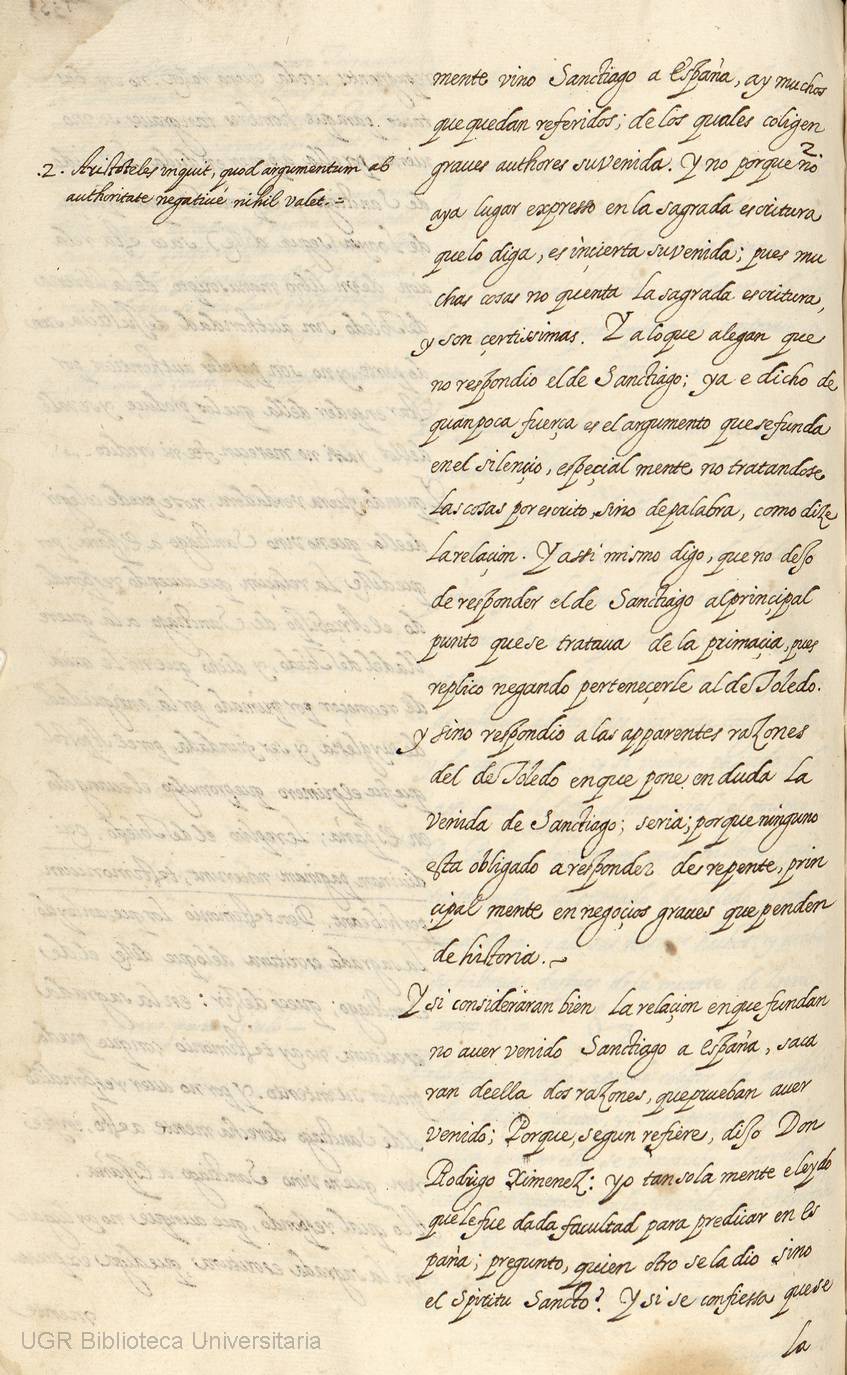 mente vino Sanctiago a España, ay muchos
que quedan referidos; de los quales coligen
graues authores su venida. Y no porque no
2.
.2. Aristoteles inquit, quod argumentum ab
authoritate negativé nihil valet.=
aya lugar expresso en la sagrada escritura
que lo diga, es inçierta su venida; pues mu
chas cosas no quenta la sagrada escritura,
y son çertissimas. Y a lo que alegan que
no respondio el de Sanctiago; ya e dicho de
quan poca fuerça es el argumento que se funda
en el silençio, espeçial mente no tratandose
las cosas por escrito, sino de palabra, como dize
la relaçion. Y assi mismo digo, que no dejo
de responder el de Sanctiago al prinçipal
punto que se trataua de la primaçia, pues
replico negando perteneçerle al de Toledo.
y sino respondio a las apparentes razones
del de Toledo en que pone en duda la
venida de Sanctiago; seria; porque ninguno
esta obligado a responder de repente, prin
çipal mente en negoçios graues que penden
de historia.
Y si consideraran bien la relaçion en que fundan
no auer venido Sanctiago a España, saca
ran de ella dos razones, que prueban auer
venido; Porque, segun refiere, dijo Don
Rodrigo Ximenez: yo tan sola mente e leydo
que le fue dada facultad para predicar en Es
paña; pregunto, quien otro se la dio sino
el Spiritu Sancto? Y si se confiessa que se
la
UGR Biblioteca Universitaria